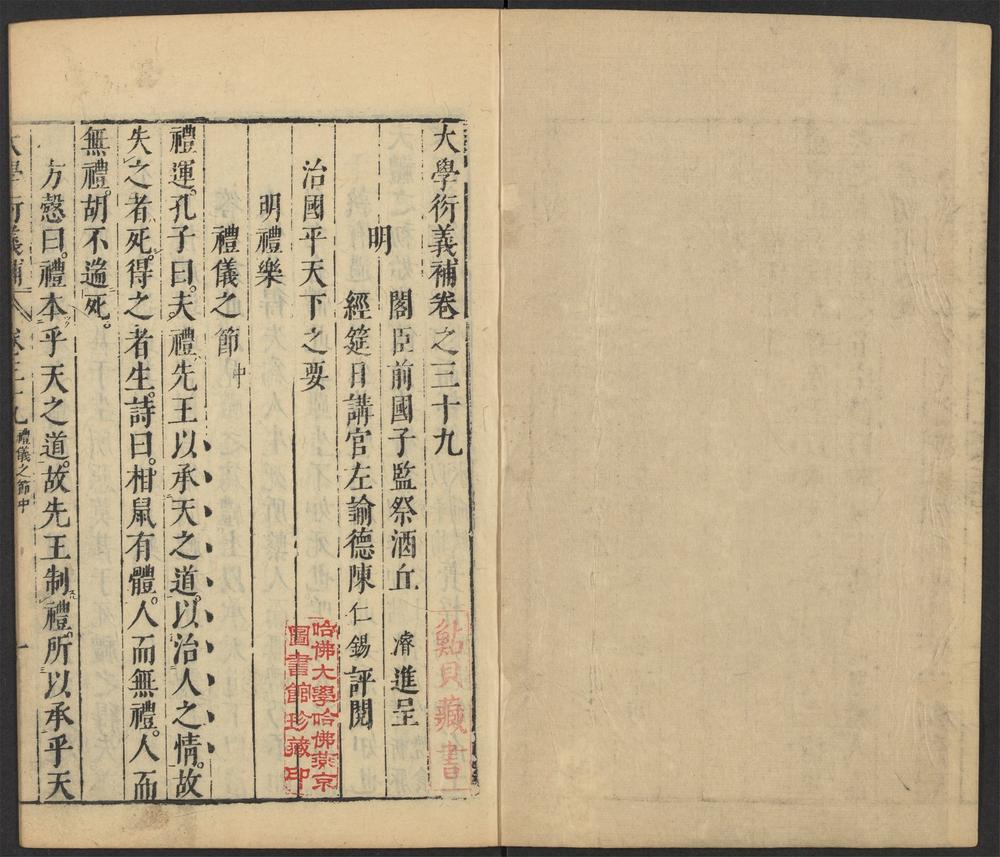 大學衍義補卷之三十九
明 閣臣前國子監祭酒丘 濬進呈
經筵日講官左諭德陳仁錫評閱
治國平天下之要
明禮樂
禮儀之節中
禮運。孔子曰。夫禮先王以承天之道。以治人之情。故
失之者死。得之者生。詩曰。相鼠有體。人而無禮。人而
無禮。胡不遄死。
方慤曰。禮本乎天之道。故先王制禮。所以承乎天
大學衍義補 卷三十九 禮儀之節中 一
藏書
哈佛大學哈佛燕京
圖書館珍藏印